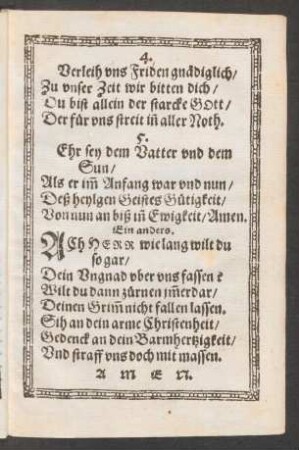 4.
Verleih vns Friden gnädiglich/
Zu vnser Zeit wir bitten dich/
Du bist allein der starcke GOtt/
Der für vns streit in̄ aller Noth.
5.
Ehr sey dem Vatter vnd dem
Sun/
Als er im̄ Anfang war vnd nun/
Deß heylgen Geistes Gütigkeit/
Von nun an biß in̄ Ewigkeit/ Amen.
Ein anders.
ACh HERR wie lang wilt du
so gar/
Dein Vngnad vber vns fassen?
Wilt du dann zürnen im̄erdar/
Deinen Grim̄ nicht fallen lassen.
Sih an dein arme Christenheit/
Gedenck an dein Barmhertzigkeit/
Vnd straff vns doch mit massen.
AMEN.